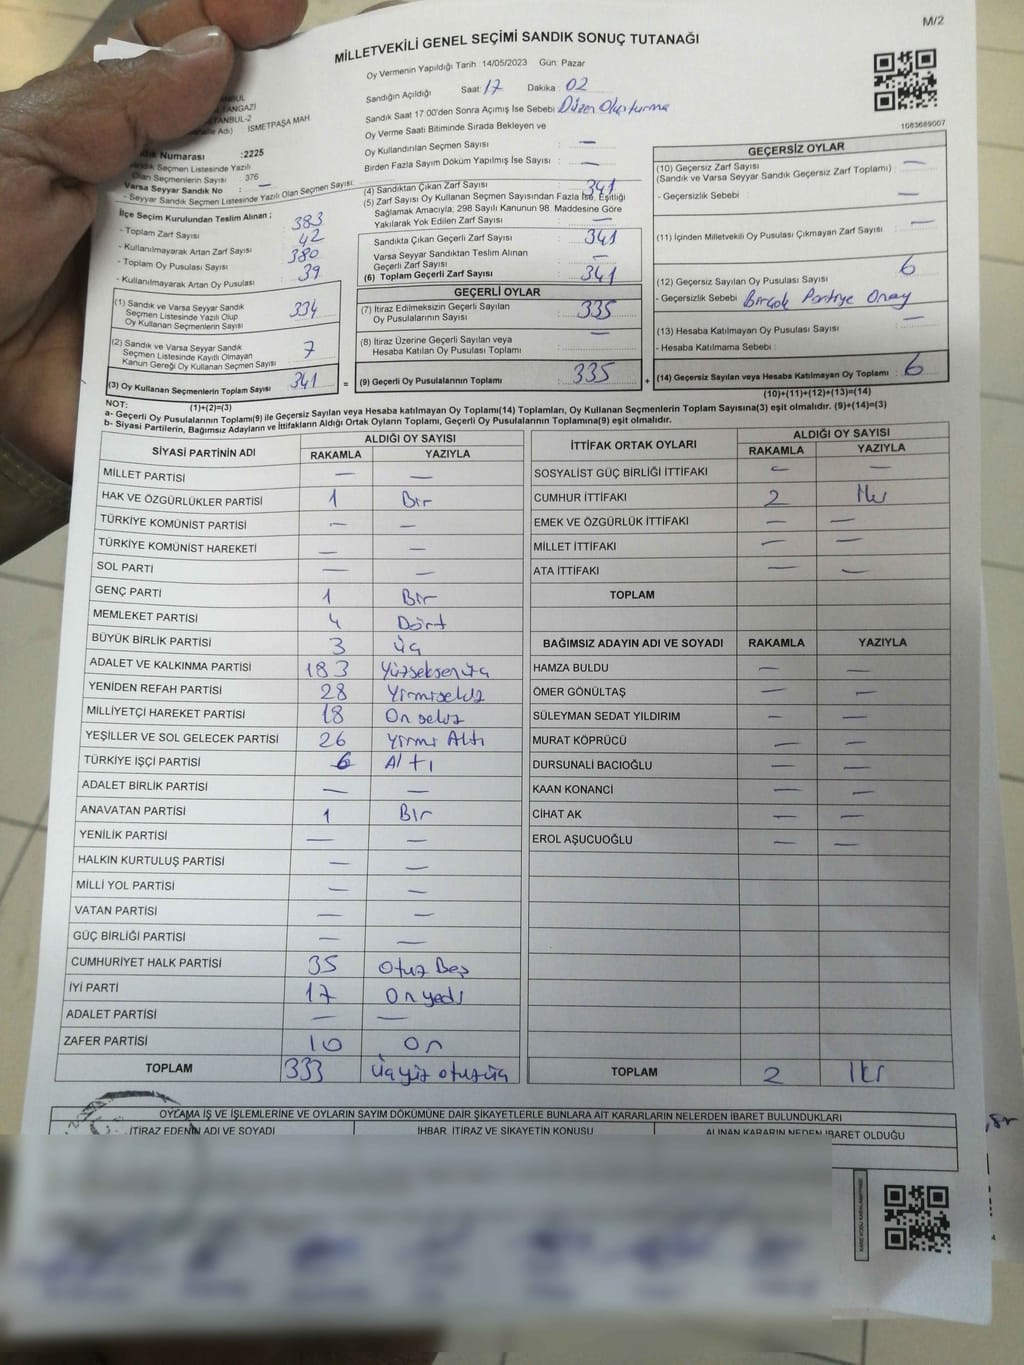 M/2
MİLLETVEKİLİ GENEL SEÇİMİ SANDIK SONUÇ TUTANAĞI
Oy Vermenin Yapıldığı Tarih : 14/05/2023 Gün: Pazar
Sandığın Açıldığı Saat: 17 Dakika : 02
Sandık Saat 17:00'den Sonra Açımış İse Sebebi : Düzen Oluşturma
Oy Verme Saati Bitiminde Sırada Bekleyen ve
Oy Kullandırılan Seçmen Sayısı : —
Birden Fazla Sayım Döküm Yapılmış İse Sayısı : —
1083689007
ANGAZİ
İSTANBUL-2
Adı) İSMETPAŞA MAH
Numarası :2225
Sandık Seçmen Listesinde Yazılı
Olan Seçmenlerin Sayısı 376
Varsa Seyyar Sandık No : —
- Seyyar Sandık Seçmen Listesinde Yazılı Olan Seçmen Sayısı:
İlçe Seçim Kurulundan Teslim Alınan ;
- Toplam Zarf Sayısı 383
- Kullanılmayarak Artan Zarf Sayısı 42
- Toplam Oy Pusulası Sayısı 380
- Kullanılmayarak Artan Oy Pusulası 39
(1) Sandık ve Varsa Seyyar Sandık
Seçmen Listesinde Yazılı Olup
Oy Kullanan Seçmenlerin Sayısı 334
(2) Sandık ve Varsa Seyyar Sandık
Seçmen Listesinde Kayıtlı Olmayan
Kanun Gereği Oy Kullanan Seçmen Sayısı 7
(3) Oy Kullanan Seçmenlerin Toplam Sayısı 341 =
(1)+(2)=(3)
(4) Sandıktan Çıkan Zarf Sayısı : 341
(5) Zarf Sayısı Oy Kullanan Seçmen Sayısından Fazla İse, Eşitliği
Sağlamak Amacıyla, 298 Sayılı Kanunun 98. Maddesine Göre
Yakılarak Yok Edilen Zarf Sayısı : —
Sandıkta Çıkan Geçerli Zarf Sayısı : 341
Varsa Seyyar Sandıktan Teslim Alınan
Geçerli Zarf Sayısı : —
(6) Toplam Geçerli Zarf Sayısı : 341
GEÇERLİ OYLAR
(7) İtiraz Edilmeksizin Geçerli Sayılan
Oy Pusulalarının Sayısı : 335
(8) İtiraz Üzerine Geçerli Sayılan veya
Hesaba Katılan Oy Pusulası Toplamı : —
(9) Geçerli Oy Pusulalarının Toplamı : 335 +
GEÇERSİZ OYLAR
(10) Geçersiz Zarf Sayısı
(Sandık ve Varsa Seyyar Sandık Geçersiz Zarf Toplamı) : —
- Geçersizlik Sebebi : —
(11) İçinden Milletvekili Oy Pusulası Çıkmayan Zarf Sayısı : —
(12) Geçersiz Sayılan Oy Pusulası Sayısı : 6
- Geçersizlik Sebebi Birçok Partiye Onay
(13) Hesaba Katılmayan Oy Pusulası Sayısı : —
- Hesaba Katılmama Sebebi :
(14) Geçersiz Sayılan veya Hesaba Katılmayan Oy Toplamı : 6
(10)+(11)+(12)+(13)=(14)
NOT:
a- Geçerli Oy Pusulalarının Toplamı(9) ile Geçersiz Sayılan veya Hesaba katılmayan Oy Toplamı(14) Toplamları, Oy Kullanan Seçmenlerin Toplam Sayısına(3) eşit olmalıdır. (9)+(14)=(3)
b- Siyasi Partilerin, Bağımsız Adayların ve İttifakların Aldığı Ortak Oyların Toplamı, Geçerli Oy Pusulalarının Toplamına(9) eşit olmalıdır.
SİYASİ PARTİNİN ADI ALDIĞI OY SAYISI
RAKAMLA YAZIYLA
MİLLET PARTİSİ — —
HAK VE ÖZGÜRLÜKLER PARTİSİ 1 Bir
TÜRKİYE KOMÜNİST PARTİSİ — —
TÜRKİYE KOMÜNİST HAREKETİ — —
SOL PARTİ — —
GENÇ PARTİ 1 Bir
MEMLEKET PARTİSİ 4 Dört
BÜYÜK BİRLİK PARTİSİ 3 Üç
ADALET VE KALKINMA PARTİSİ 183 Yüzseksenüç
YENİDEN REFAH PARTİSİ 28 Yirmisekiz
MİLLİYETÇİ HAREKET PARTİSİ 18 On sekiz
YEŞİLLER VE SOL GELECEK PARTİSİ 26 Yirmi Altı
TÜRKİYE İŞÇİ PARTİSİ 6 Altı
ADALET BİRLİK PARTİSİ — —
ANAVATAN PARTİSİ 1 Bir
YENİLİK PARTİSİ — —
HALKIN KURTULUŞ PARTİSİ — —
MİLLİ YOL PARTİSİ — —
VATAN PARTİSİ — —
GÜÇ BİRLİĞİ PARTİSİ — —
CUMHURİYET HALK PARTİSİ 35 Otuz Beş
İYİ PARTİ 17 On yedi
ADALET PARTİSİ — —
ZAFER PARTİSİ 10 On
TOPLAM 333 Üçyüz otuzüç
İTTİFAK ORTAK OYLARI ALDIĞI OY SAYISI
RAKAMLA YAZIYLA
SOSYALİST GÜÇ BİRLİĞİ İTTİFAKI — —
CUMHUR İTTİFAKI 2 İki
EMEK VE ÖZGÜRLÜK İTTİFAKI — —
MİLLET İTTİFAKI — —
ATA İTTİFAKI — —
TOPLAM
BAĞIMSIZ ADAYIN ADI VE SOYADI RAKAMLA YAZIYLA
HAMZA BULDU — —
ÖMER GÖNÜLTAŞ — —
SÜLEYMAN SEDAT YILDIRIM — —
MURAT KÖPRÜCÜ — —
DURSUNALİ BACIOĞLU — —
KAAN KONANCİ — —
CİHAT AK — —
EROL AŞUCUOĞLU — —
TOPLAM 2 İki
OYLAMA İŞ VE İŞLEMLERİNE VE OYLARIN SAYIM DÖKÜMÜNE DAİR ŞİKAYETLERLE BUNLARA AİT KARARLARIN NELERDEN İBARET BULUNDUKLARI
İTİRAZ EDENİN ADI VE SOYADI İHBAR, İTİRAZ VE ŞİKAYETİN KONUSU ALINAN KARARIN NEDEN İBARET OLDUĞU